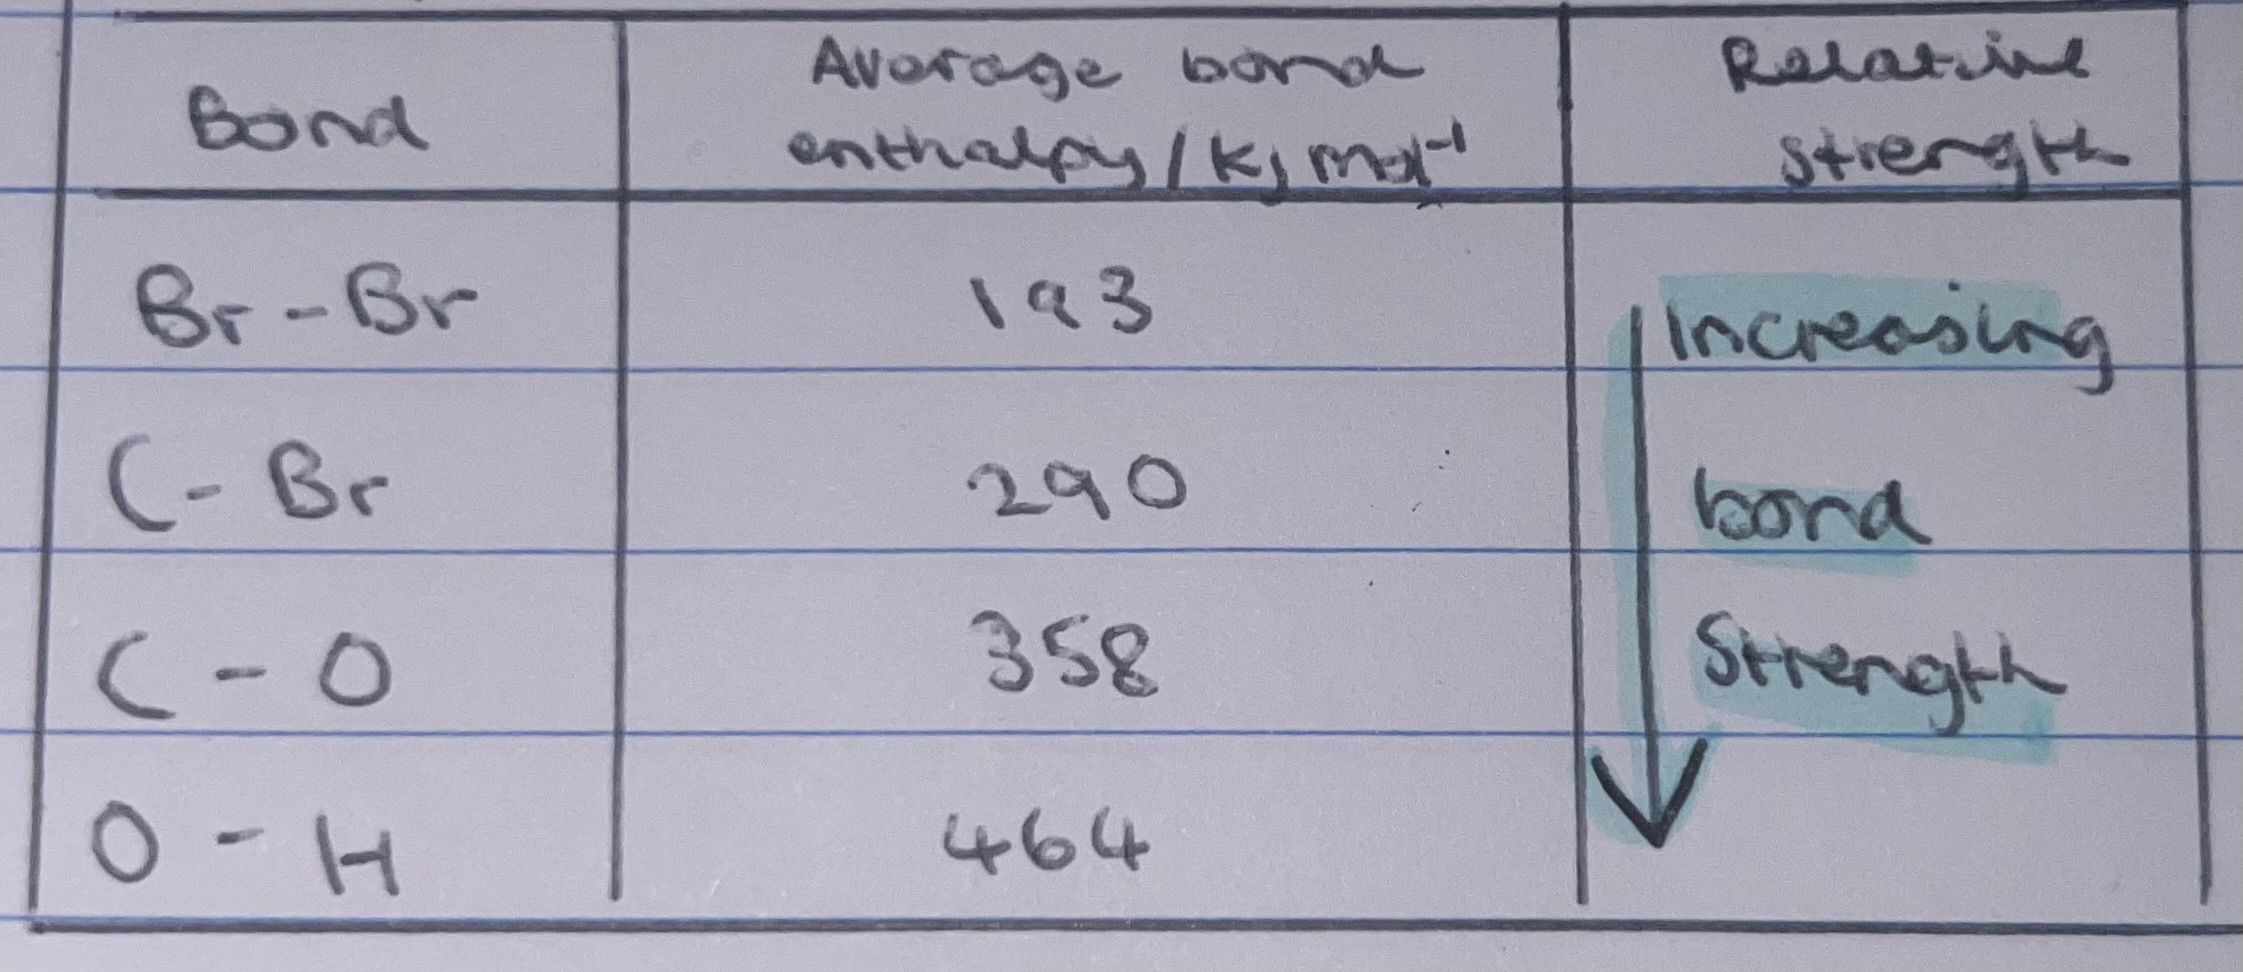 Bond
Average bond
enthalpy/kJ mol-1
Relative
strength
Br-Br
193
Increasing
C-Br
290
bond
C-O
358
Strength
O-H
464